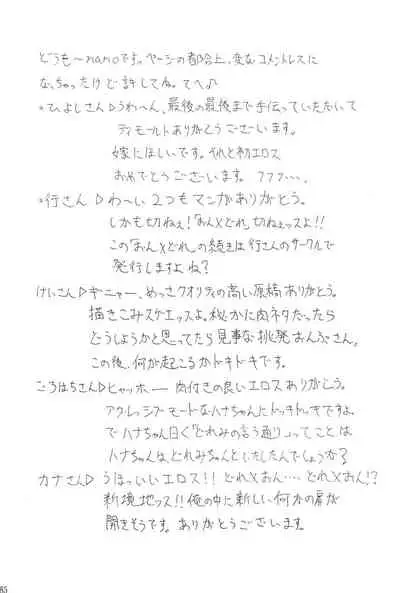 どうも～nanoです。ページの都合上、変なコメントレスに
なっちゃったけど許してね。てへ♪
・ひよしさん▷うわ～ん、最後の最後まで手伝っていただいて
ディモールトありがとうございます。
嫁にほしいです。それと初エロス
おめでとうございます。フフフ・・・、
・行さん▷わ～い2つもマンガありがとう。
しかも切ねぇ！「おん×どれ」切ねぇッスよ!!
この「おん×どれ」の続きは行さんのサークルで
発行しますよね？
けいさん▷ギニャー、めっさクオリティの高い原稿ありがとう。
描きこみスゲエッスよ。秘かに肉ネタだったら
どうしようかと思ってたら見事な挑発おんぷさん。
この後、何が起こるかドキドキです。
ごろはちさん▷ヒャッホー 肉付きの良いエロスありがとう。
アグレッシブモードなハナちゃんにドッキドッキですよ
でハナちゃん曰く「どれみの言う通り」ってことは
ハナちゃんは、どれみちゃんといたしたんでしょうか？
カナさん▷うほっいいエロス!!どれ×おん・・・・どれ×おん!?
新境地ッス!!俺の中に新しい何かの扉が
開きそうです。ありがとうございます。
85